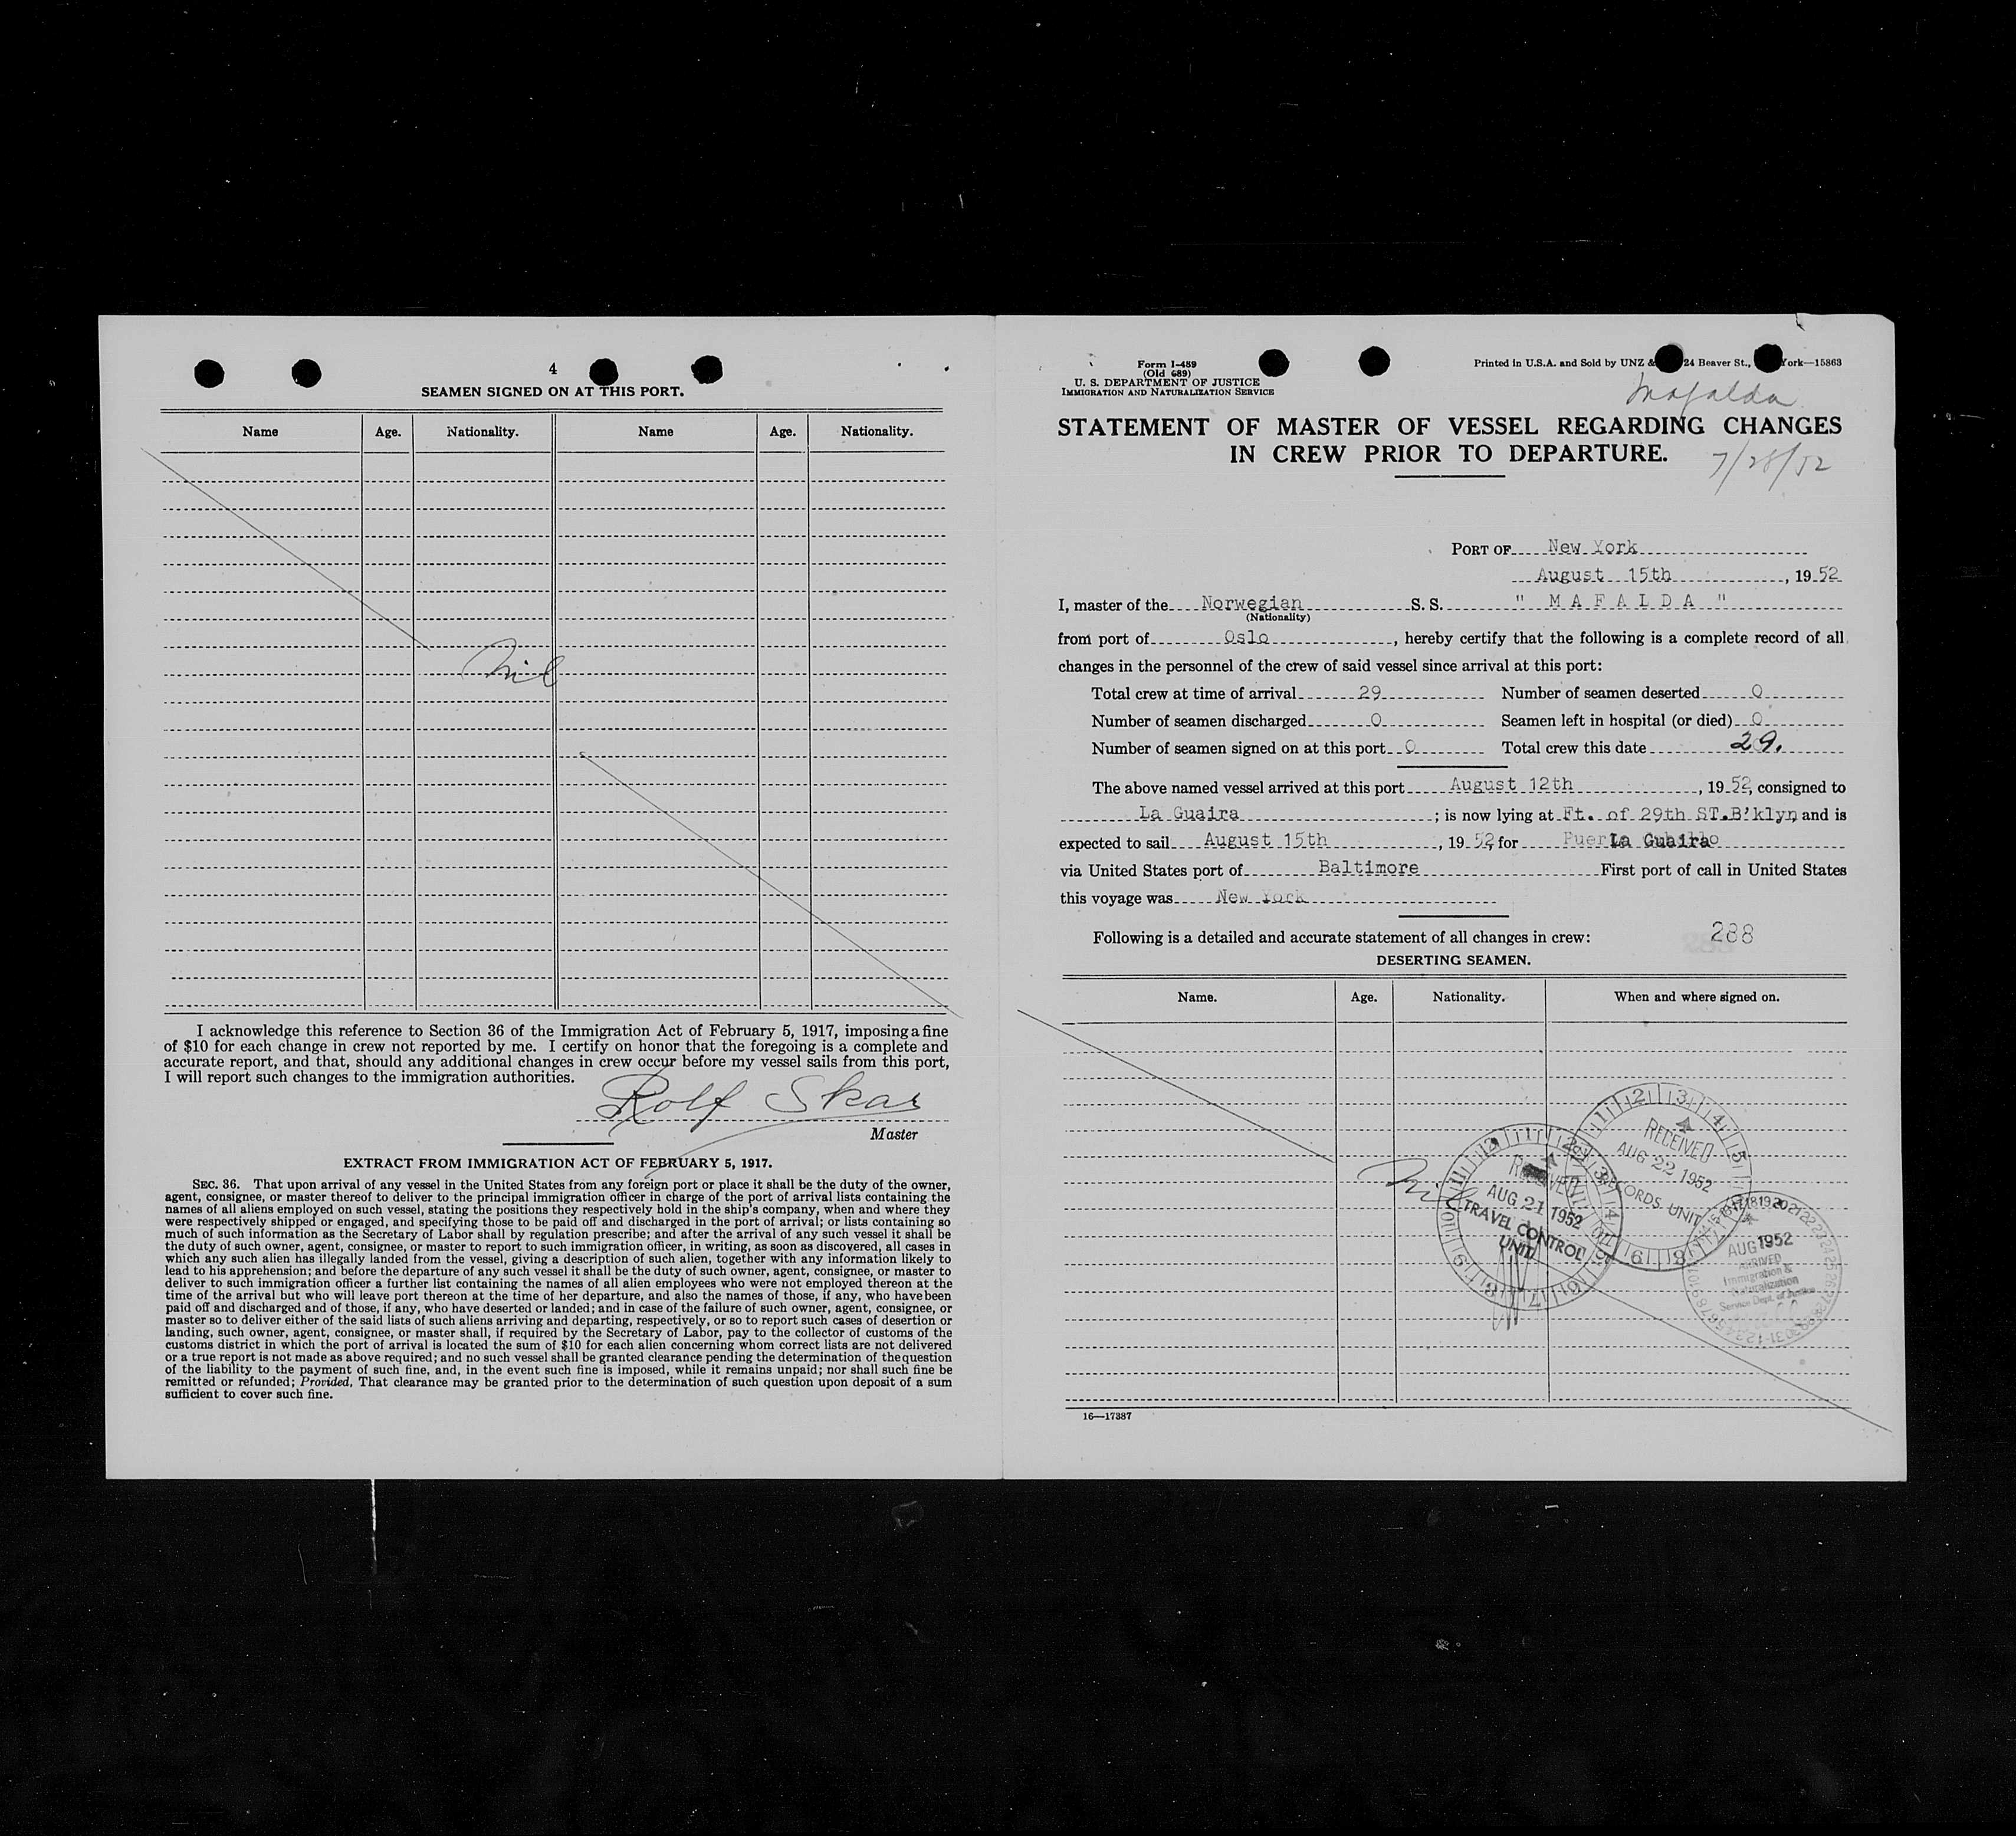 4
SEAMEN SIGNED ON AT THIS PORT.
Name Age. Nationality. Name Age. Nationality.
Nil
I acknowledge this reference to Section 36 of the Immigration Act of February 5, 1917, imposing a fine
of $10 for each change in crew not reported by me. I certify on honor that the foregoing is a complete and
accurate report, and that, should any additional changes in crew occur before my vessel sails from this port,
I will report such changes to the immigration authorities.
Rolf Skar
Master
EXTRACT FROM IMMIGRATION ACT OF FEBRUARY 5, 1917.
SEC. 36. That upon arrival of any vessel in the United States from any foreign port or place it shall be the duty of the owner,
agent, consignee, or master thereof to deliver to the principal immigration officer in charge of the port of arrival lists containing the
names of all aliens employed on such vessel, stating the positions they respectively hold in the ship's company, when and where they
were respectively shipped or engaged, and specifying those to be paid off and discharged in the port of arrival; or lists containing so
much of such information as the Secretary of Labor shall by regulation prescribe; and after the arrival of any such vessel it shall be
the duty of such owner, agent, consignee, or master to report to such immigration officer, in writing, as soon as discovered, all cases in
which any such alien has illegally landed from the vessel, giving a description of such alien, together with any information likely to
lead to his apprehension; and before the departure of any such vessel it shall be the duty of such owner, agent, consignee, or master to
deliver to such immigration officer a further list containing the names of all alien employees who were not employed thereon at the
time of the arrival but who will leave port thereon at the time of her departure, and also the names of those, if any, who have been
paid off and discharged and of those, if any, who have deserted or landed; and in case of the failure of such owner, agent, consignee, or
master so to deliver either of the said lists of such aliens arriving and departing, respectively, or so to report such cases of desertion or
landing, such owner, agent, consignee, or master shall, if required by the Secretary of Labor, pay to the collector of customs of the
customs district in which the port of arrival is located the sum of $10 for each alien concerning whom correct lists are not delivered
or a true report is not made as above required; and no such vessel shall be granted clearance pending the determination of the question
of the liability to the payment of such fine, and, in the event such fine is imposed, while it remains unpaid; nor shall such fine be
remitted or refunded; Provided, That clearance may be granted prior to the determination of such question upon deposit of a sum
sufficient to cover such fine.
Form I-489
(Old 689)
U. S. DEPARTMENT OF JUSTICE
IMMIGRATION AND NATURALIZATION SERVICE
Printed in U.S.A. and Sold by UNZ & 24 Beaver St., York—15863
Mafalda
STATEMENT OF MASTER OF VESSEL REGARDING CHANGES
IN CREW PRIOR TO DEPARTURE.
7/28/52
PORT OF New York
August 15th, 1952
I, master of the Norwegian S. S. " M A F A L D A "
(Nationality)
from port of Oslo, hereby certify that the following is a complete record of all
changes in the personnel of the crew of said vessel since arrival at this port:
Total crew at time of arrival 29 Number of seamen deserted 0
Number of seamen discharged 0 Seamen left in hospital (or died) 0
Number of seamen signed on at this port 0 Total crew this date 29.
The above named vessel arrived at this port August 12th, 1952, consigned to
La Guaira; is now lying at Ft. of 29th ST.B'klyn and is
expected to sail August 15th, 1952, for La Guaira
via United States port of Baltimore First port of call in United States
this voyage was New York
Following is a detailed and accurate statement of all changes in crew: 288
DESERTING SEAMEN.
Name. Age. Nationality. When and where signed on.
Nil
RECEIVED
AUG 22 1952
RECORDS UNIT
RECEIVED
AUG 21 1952
TRAVEL CONTROL
UNIT
AUG 1952
ARRIVED
Immigration &
Naturalization
Service Dept. of Justice
16—17387